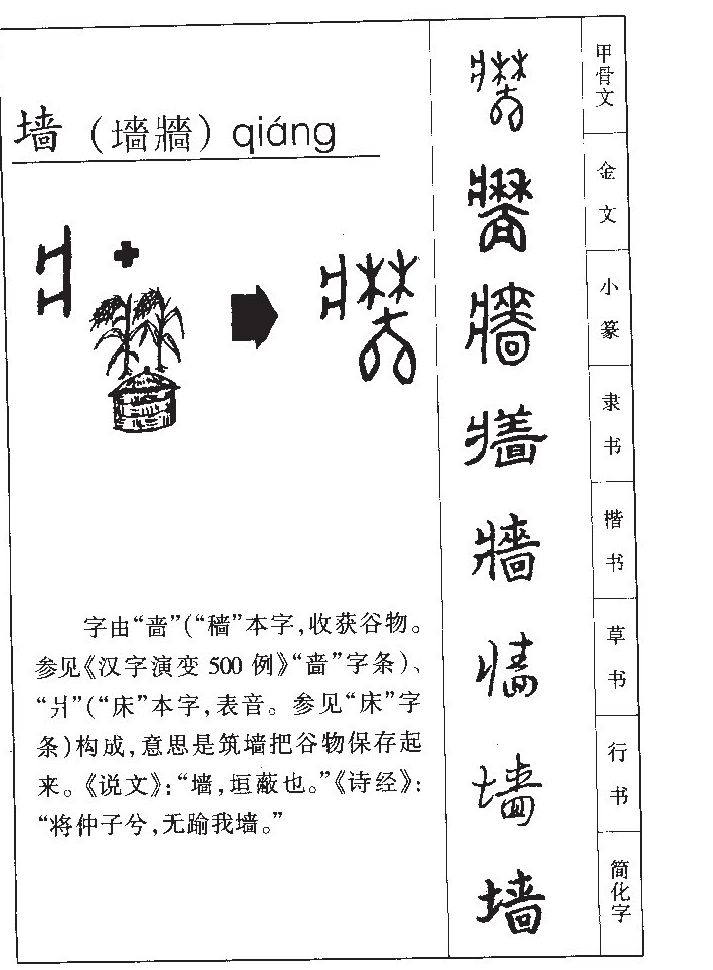 墙(墙牆)qiáng
字由“啬”(“穑”本字,收获谷物。
参见《汉字演变500例》“啬”字条)、
“爿”(“床”本字,表音。参见“床”字
条)构成,意思是筑墙把谷物保存起
来。《说文》:“墙,垣蔽也。”《诗经》:
“将仲子兮,无踰我墙。”
牆 甲骨文
牆 金文
牆 小篆
牆 隶书
牆 楷书
墙 草书
墙 行书
墙 简化字